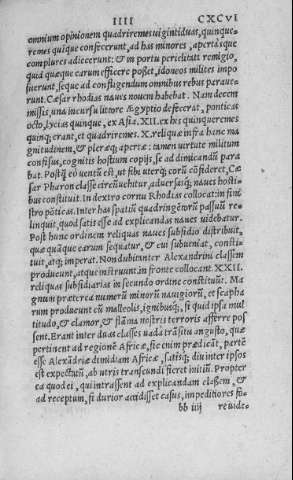 IIII CXCVI
omnium opinionem quadriremes uigintiduas, quinque-
remes quinque confecerunt, ad has minores, apertasque
complures adiecerunt: & in portu periclitati remigio,
quid quæque earum efficere posset, idoneos milites impo
suerunt, seque ad confligendum omnibus rebus paraue-
runt. Cæsar rhodias naues nouem habebat. Nam decem
missis, una in cursu littore Aegyptio defecerat, ponticas
octo, lycias quinque, ex Asia. XII. ex his quinqueremes
quinq; erant, et quadriremes. X. reliquæ infra hanc ma
gnitudinem, & pleræq; apertæ: tamen uirtute militum
confisus, cognitis hostium copijs, se ad dimicandū para
bat. Postq̃ eò uentū est, ut sibi uterq; eorū cōfideret, Cæ-
sar Pharon classe circūuehitur, aduersasq; naues hosti-
bus constituit. In dextro cornu Rhodias collocat: in sini
stro pōticas. Inter has spatiū quadringētorū passuū re-
linquit, quod satis esse ad explicandas naues uidebatur.
Post hunc ordinem reliquas naues subsidio distribuit,
quæ quāque earum sequatur, & cui subueniat, consti-
tuit, atq; imperat. Non dubitanter Alexandrini classem
producunt, atque instruunt: in fronte collocant. XXII.
reliquas subsidiarias in secundo ordine constituūt. Ma
gnum præterea numerū minorū nauigiorū, et scapha
rum producunt cū malleolis, ignibusq;, si quid ipsa mul
titudo, & clamor, & flāma nostris terroris afferre pos
sent. Erant inter duas classes uada trāsitu angusto, quæ
pertinent ad regionē Africæ, sic enim prædicāt, partē
esse Alexādriæ dimidiam Africæ, satisq; diu inter ipsos
est expectatū, ab utris transeundi fieret initiū. Propter
ea quod ei, qui intrassent ad explicandam classem, &
ad receptum, si durior accidisset casus, impeditiores fo-
bb iiij